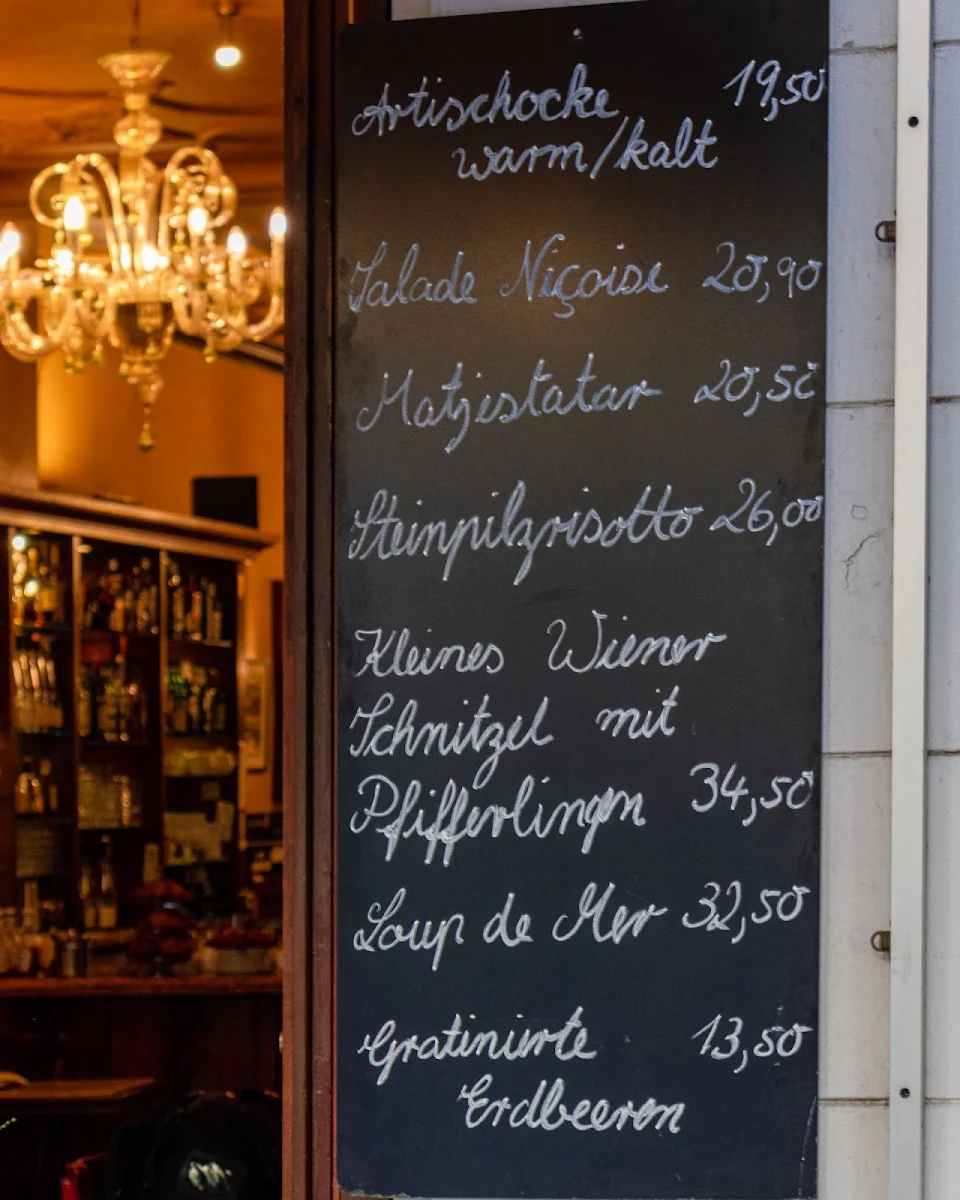 Artischocke 19,50
warm/kalt
Salade Niçoise 20,90
Matjestatar 20,50
Steinpilzrisotto 26,00
Kleines Wiener
Schnitzel mit
Pfifferlingen 34,50
Loup de Mer 32,50
Gratinierte 13,50
Erdbeeren